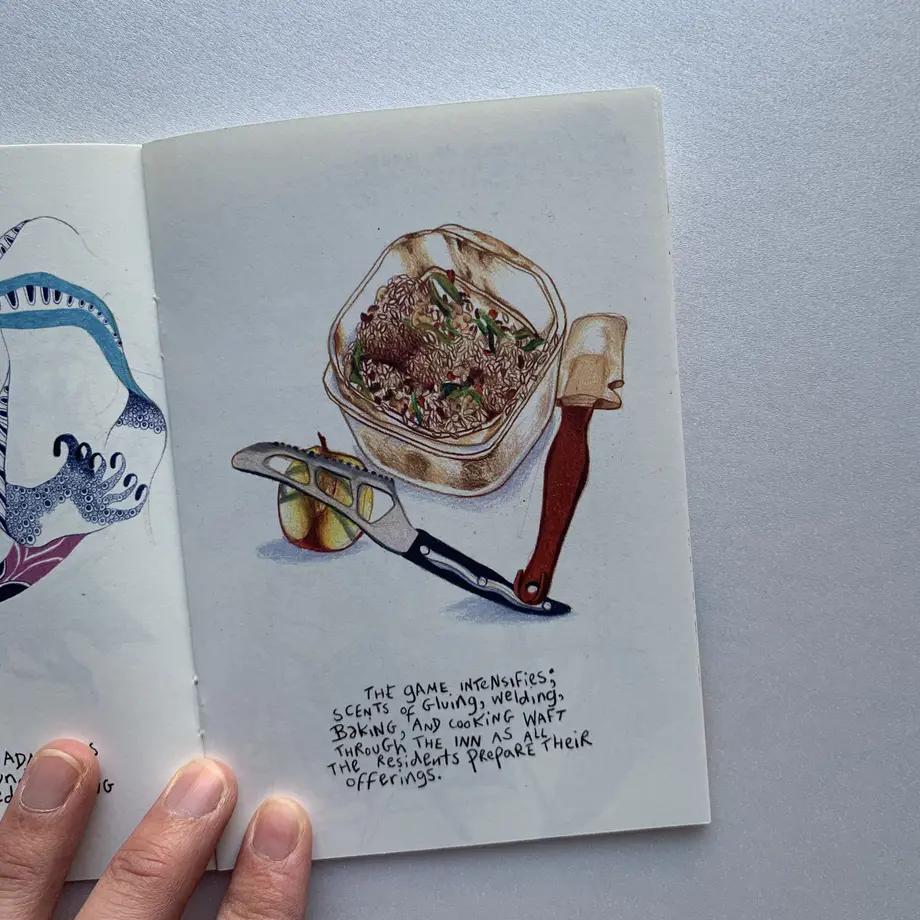 THE GAME INTENSIFIES;
SCENTS OF GLUING, WELDING,
BAKING, AND COOKING WAFT
THROUGH THE INN AS ALL
THE RESIDENTS PREPARE THEIR
OFFERINGS.